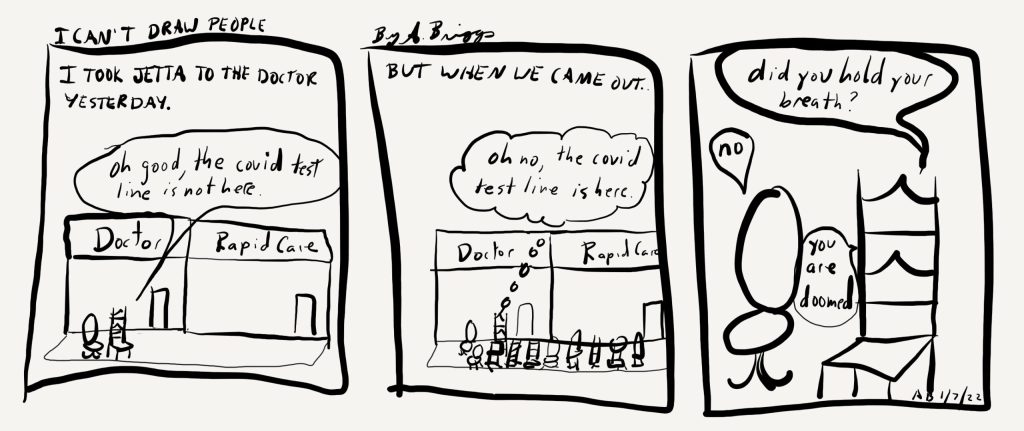 I CAN'T DRAW PEOPLE
By A. Briggs
I TOOK JETTA TO THE DOCTOR
YESTERDAY.
oh good, the covid test
line is not here.
Doctor
Rapid Care
BUT WHEN WE CAME OUT..
oh no, the covid
test line is here.
Doctor
Rapid Care
did you hold your
breath?
no
you
are
doomed
AB 1/7/22